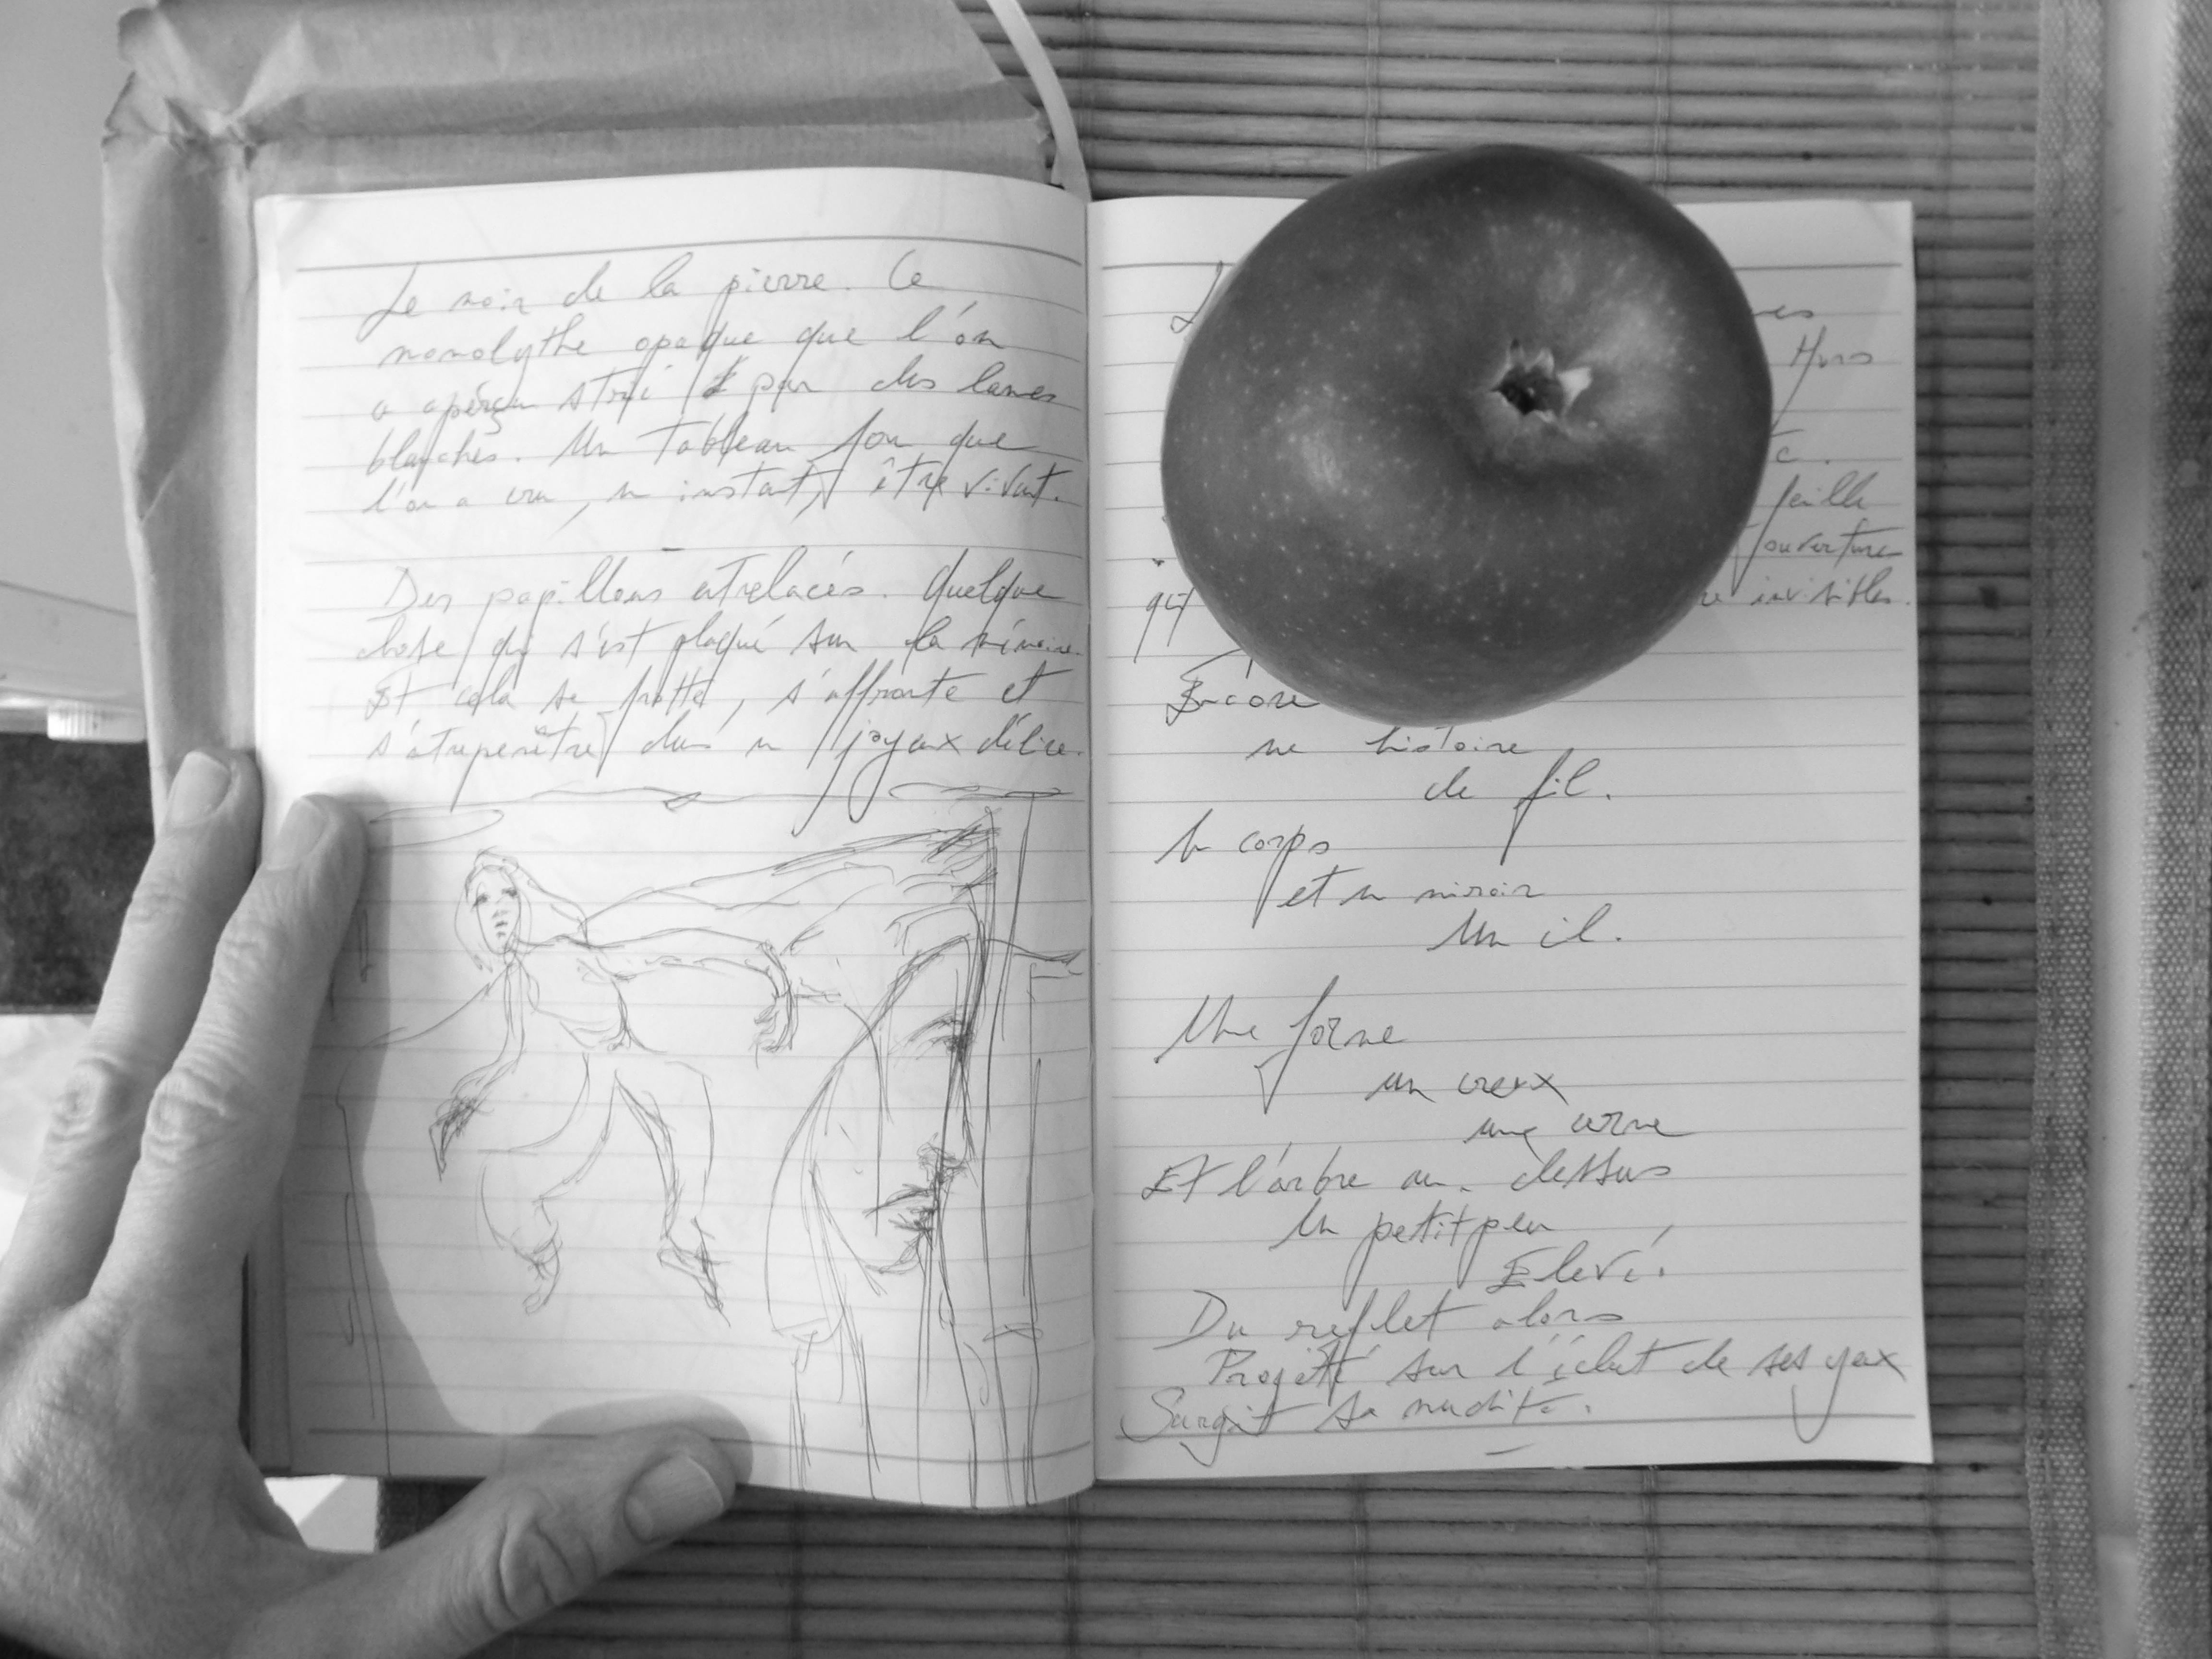 Le noir de la pierre. Ce
monolythe opaque que l'on
a aperçu strié par des lames
blanches. Un tableau fou que
l'on a cru, un instant, être vivant.
Des papillons entrelacés. Quelque
chose qui s'est plaqué sur la mémoire.
Et cela se frotte, s'affronte et
dans un joyeux délire.
Murs
feuille
ouverture
invisibles.
Encore
une histoire
de fil.
Un corps
et un miroir
Un il.
Une forme
un creux
une cerne
Et l'arbre au dessus
Un petit peu
Elevé.
Du reflet alors
Projeté sur l'éclat de ses yeux
Surgit sa nudité.